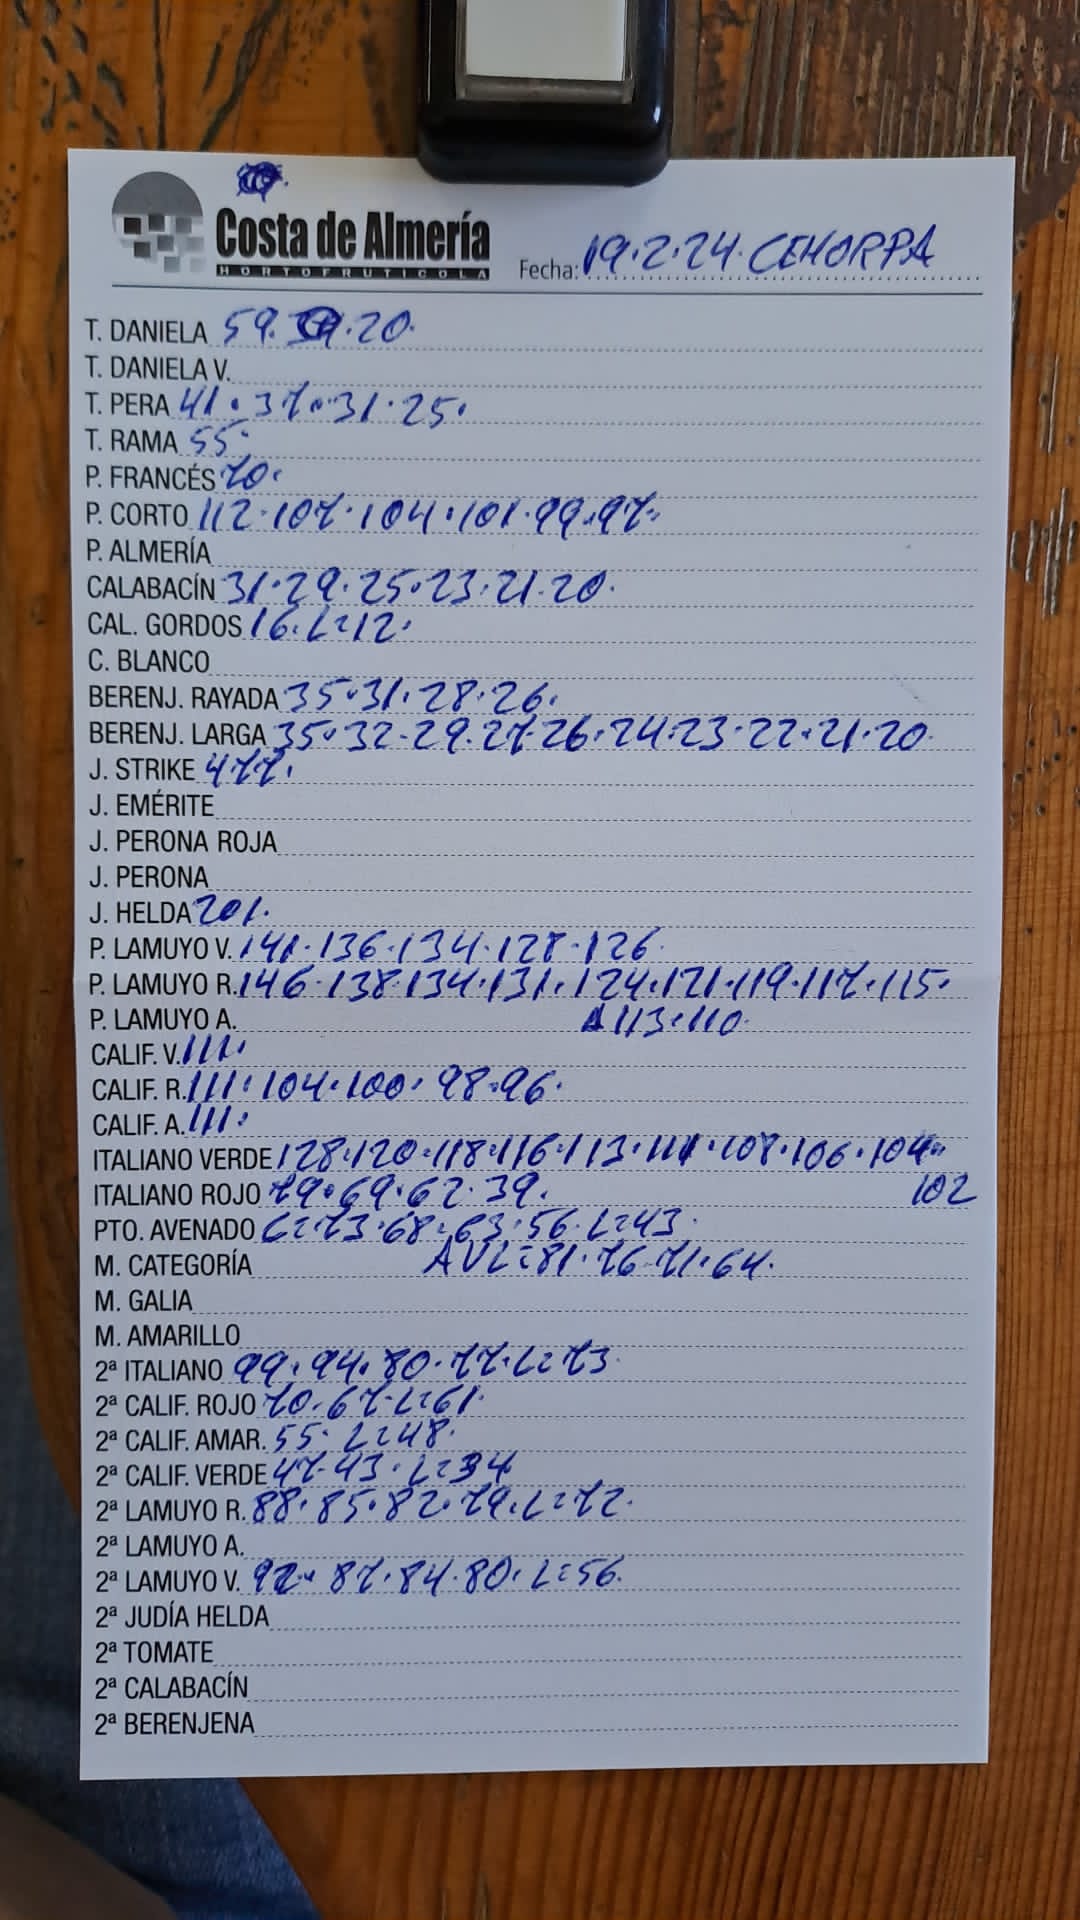 Costa de Almería
HORTOFRUTICOLA
Fecha: 19.2.24. CEHORPA
T. DANIELA 59. 20.
T. DANIELA V.
T. PERA 41.37.31.25.
T. RAMA 55.
P. FRANCÉS 70.
P. CORTO 112.107.104.101.99.97.
P. ALMERÍA
CALABACÍN 31.29.25.23.21.20.
CAL. GORDOS 16.L=12.
C. BLANCO
BERENJ. RAYADA 35.31.28.26.
BERENJ. LARGA 35.32.29.27.26.24.23.22.21.20.
J. STRIKE 477.
J. EMÉRITE
J. PERONA ROJA
J. PERONA
J. HELDA 201.
P. LAMUYO V. 141.136.134.128.126.
P. LAMUYO R. 146.138.134.131.124.121.119.117.115.
P. LAMUYO A. 113.110.
CALIF. V. 111.
CALIF. R. 111.104.100.98.96.
CALIF. A. 111.
ITALIANO VERDE 128.120.118.116.113.111.108.106.104.
ITALIANO ROJO 79.69.62.39. 102
PTO. AVENADO C=73.68.63.56.L=43.
M. CATEGORÍA AVL=81.76.71.64.
M. GALIA
M. AMARILLO
2ª ITALIANO 99.94.80.77.L=73.
2ª CALIF. ROJO 70.67.L=61.
2ª CALIF. AMAR. 55.L=48.
2ª CALIF. VERDE 47.43.L=34
2ª LAMUYO R. 88.85.82.79.L=72.
2ª LAMUYO A.
2ª LAMUYO V. 92.87.84.80.L=56.
2ª JUDÍA HELDA
2ª TOMATE
2ª CALABACÍN
2ª BERENJENA